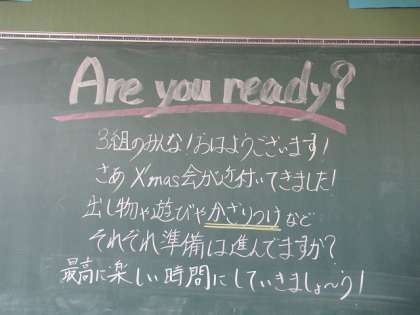 Are you ready?
3組のみんな!おはようございます!
さあ Xmas会が近付いてきました!
出し物や遊びやかざりつけなど
それぞれ準備は進んでますか?
最高に楽しい時間にしていきましょ〜う!